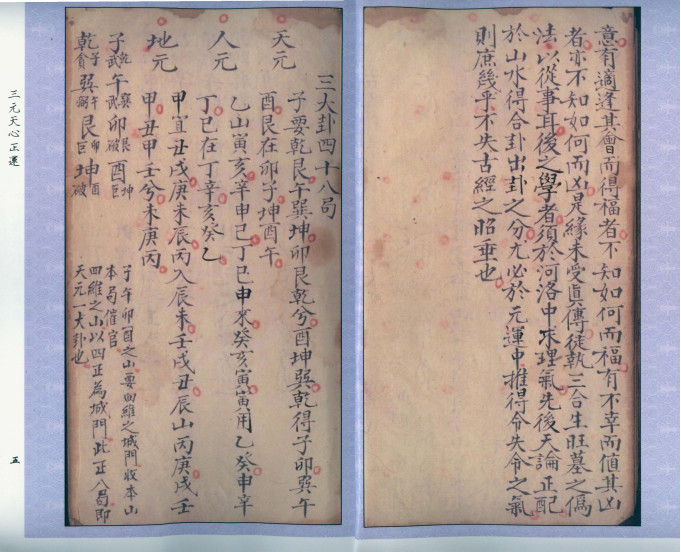 意有適逢其會而得福者不知如何而福有不幸而值其凶
者亦不知如何而凶是緣未受眞傳徒執三合生旺墓之僞
法以從事耳後之學者須於河洛中求理氣先後天論正配
於山水得合卦出卦之分尤必於元運中推得令失令之氣
則庶幾乎不失古經之昭垂也
三大卦四十八局
天元
子要乾艮午巽坤卯艮乾兮酉坤巽乾得子卯巽午
酉艮在卯子坤酉午
人元
乙山寅亥辛申己丁巳申來癸亥寅寅用乙癸申辛
丁巳在丁辛亥癸乙
地元
甲宜丑戌庚未辰丙入辰未壬戌丑辰山丙庚戌壬
甲丑甲壬兮未庚丙
子武乾午武巽卯破艮酉巨坤
乾貪子巽弼午艮巨卯坤破酉
子午卯酉之山要四維之城門收本山
本局催官
四維之山以四正為城門此正八局即
天元一大卦也
三元天心正運
五